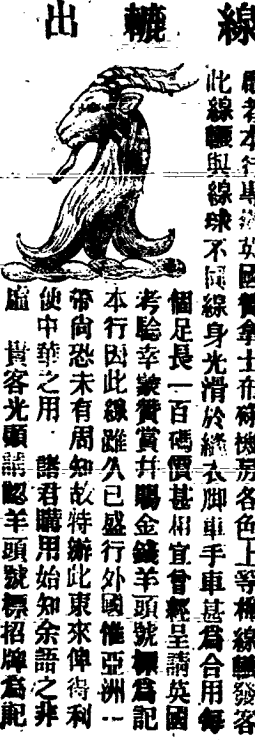 線轆出
者本行專辦英國拿士布廠機房各色上等棉線轆發客
此線轆與線球不同線身光滑於縫衣脚車手車甚爲合用每
個足長一百碼價甚相宜曾經呈請英國
考驗幸蒙贊賞并賜金錢羊頭號標爲記
本行因此線雖久已盛行外國惟亞洲一
帶尙恐未有周知故特辦此東來俾得利
便中華之用 諸君購用始知余語之非
虛 貴客光顧請認羊頭號標招牌爲記